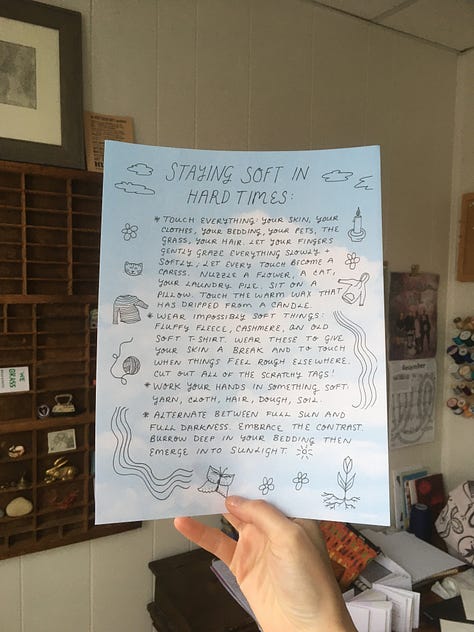 STAYING SOFT IN
HARD TIMES:
* TOUCH EVERYTHING: YOUR SKIN, YOUR
CLOTHES, YOUR BEDDING, YOUR PETS, THE
GRASS, YOUR HAIR. LET YOUR FINGERS
GENTLY GRAZE EVERYTHING SLOWLY +
SOFTLY, LET EVERY TOUCH BECOME A
CARESS. NUZZLE A FLOWER, A CAT,
YOUR LAUNDRY PILE. SIT ON A
PILLOW. TOUCH THE WARM WAX THAT
HAS DRIPPED FROM A CANDLE.
* WEAR IMPOSSIBLY SOFT THINGS:
FLUFFY FLEECE, CASHMERE, AN OLD
SOFT T-SHIRT. WEAR THESE TO GIVE
YOUR SKIN A BREAK AND TO TOUCH
WHEN THINGS FEEL ROUGH ELSEWHERE.
CUT OUT ALL OF THE SCRATCHY TAGS!
* WORK YOUR HANDS IN SOMETHING SOFT:
YARN, CLOTH, HAIR, DOUGH, SOIL.
* ALTERNATE BETWEEN FULL SUN AND
FULL DARKNESS. EMBRACE THE CONTRAST.
BURROW DEEP IN YOUR BEDDING THEN
EMERGE INTO SUNLIGHT.